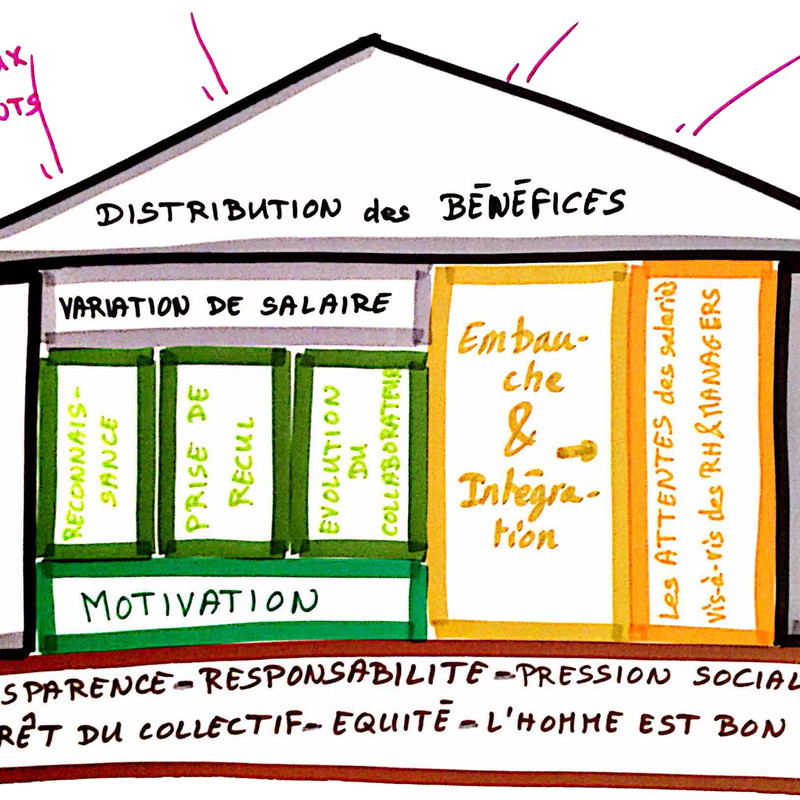 UX
UTS
DISTRIBUTION des BĒNĒFICES
VARIATION DE SALAIRE
RECONNAIS-
SANCE
PRISE DE
RECUL
EVOLUTION
DU
COLLABORATEUR
Embau-
che
&
Intégra-
tion
Les ATTENTES des salariés
vis-à-vis des RH & MANAGERS
MOTIVATION
SPARENCE - RESPONSABILITE - PRESSION SOCIAL
RÊT DU COLLECTIF - EQUITĒ - L'HOMME EST BON